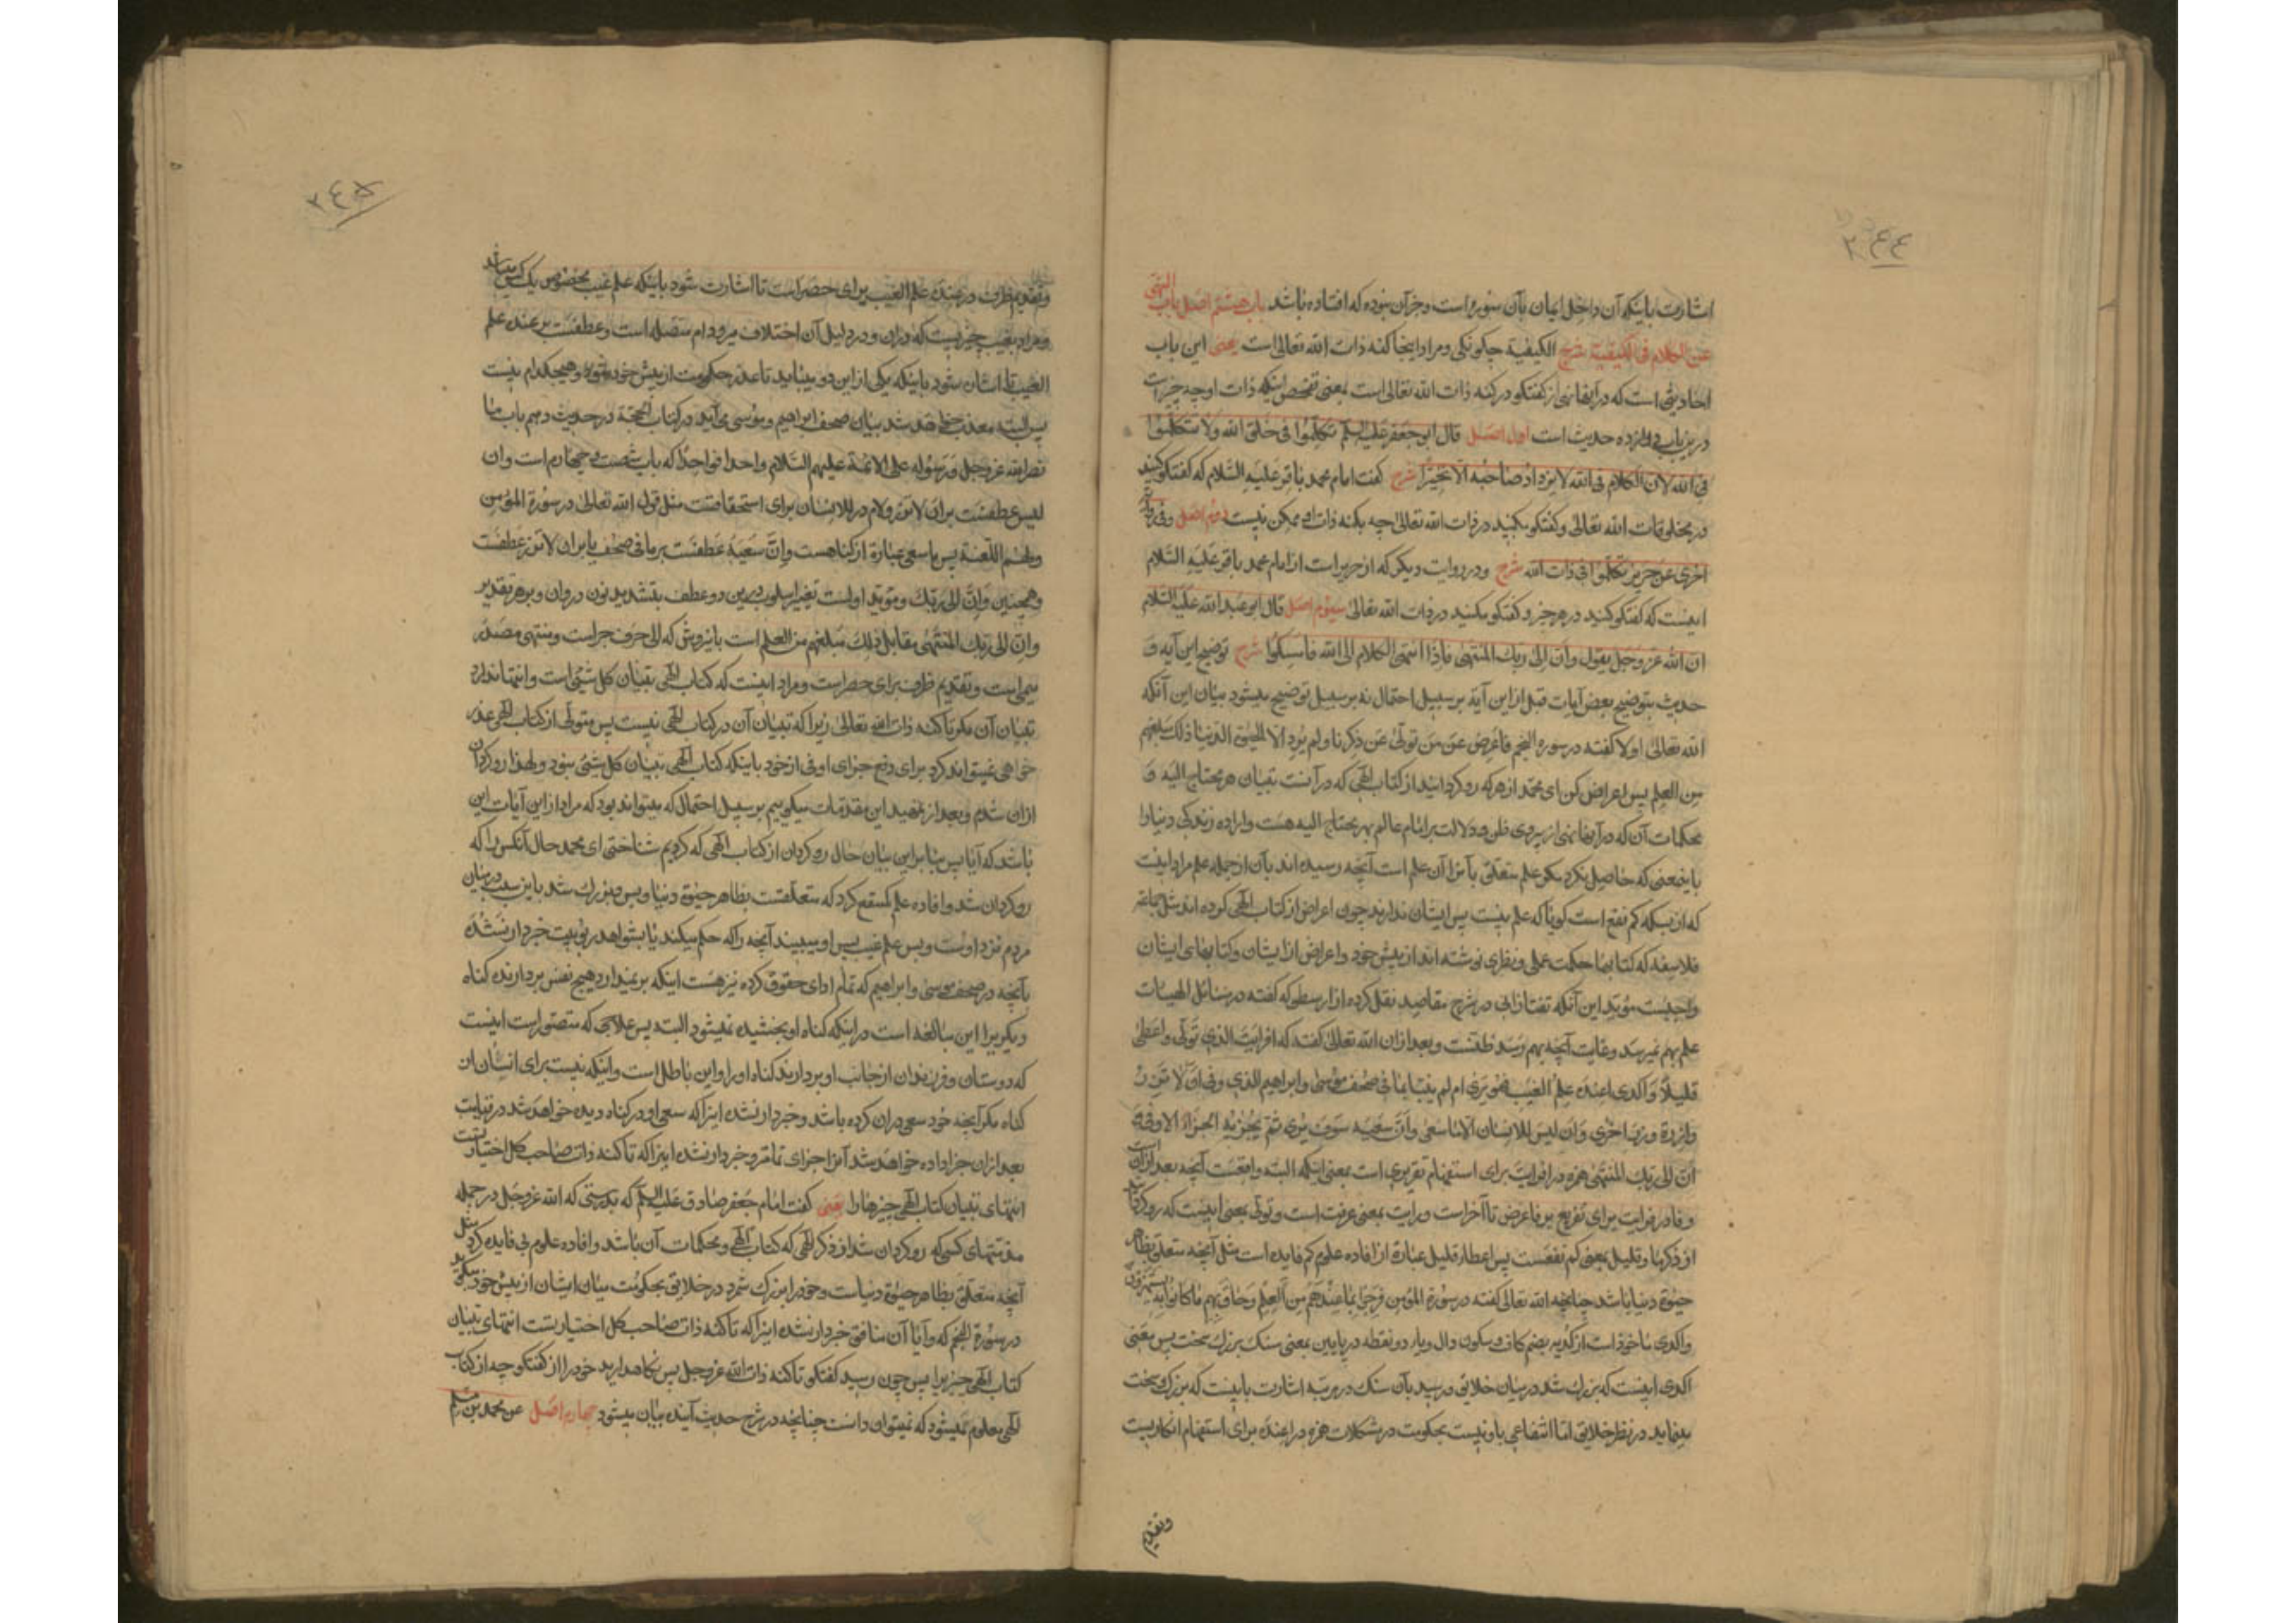 ٢٤٤
اشارت باینکه آن داخل ایمان بآن سوره است و جزآن نبوده که افتاده باشد باب هشتم اصل باب النهی
عن الکلام فی الکیفیة شرح الکیفیة چگونگی و مراد اینجا کنه ذات الله تعالی است یعنی این باب
احادیثی است که در آنها نهی از گفتگو در کنه ذات الله تعالی است بمعنی تفحص اینکه ذات او چه چیز است
درین باب دوازده حدیث است اول اصل قال ابو جعفر علیه السلم تکلموا فی خلق الله ولا تتکلموا
فی الله لان الکلام فی الله لا یزداد صاحبه الا تحیرا شرح گفت امام محمد باقر علیه السلام که گفتگو کنید
در مخلوقات الله تعالی و گفتگو مکنید در ذات الله تعالی چه بکنه ذات او ممکن نیست دوم اصل وفی روایة
اخری عن حریز تکلموا فی ذات الله شرح و در روایت دیگر که از حریز است از امام محمد باقر علیه السلام
اینست که گفتگو کنید در هر چیز و گفتگو مکنید در ذات الله تعالی سیوم اصل قال ابو عبد الله علیه السلام
ان الله عز وجل یقول وان الی ربک المنتهی فاذا انتهی الکلام الی الله فامسکوا شرح توضیح این آیه و
حدیث بتوضیح بعض آیات قبل از این آیة بر سبیل احتمال نه بر سبیل توضیح میشود بیان این آنکه
الله تعالی اولا گفته در سوره النجم فاعرض عن من تولی عن ذکرنا ولم یرد الا الحیوة الدنیا ذلک مبلغهم
من العلم پس اعراض کن ای محمد از هر که رو گردانید از کتاب الهی که در آنست تبیان هر محتاج الیه و
محکمات آن که در آنها نهی از پیروی ظن و دلالت بر امام عالم بهر محتاج الیه هست و اراده زندگی دنیا را
باینمعنی که حاصل نکرد مگر علم متعلق بآنرا آن علم است آنچه رسیده اند بآن از جمله علم مراد اینست
که از بسکه کم نفع است گویا که علم نیست پس ایشان ندارند چون اعراض از کتاب الهی کرده اند مثل جماعة
فلاسفه که کتابها حکمت عملی و نظری نوشته اند از پیش خود و اعراض از ایشان و کتابهای ایشان
واجبست مؤید این آنکه تفتازانی در شرح مقاصد نقل کرده از ارسطو که گفته در مسائل الهیات
علم بهم نمیرسد و غایت آنچه بهم رسد ظنست و بعد از آن الله تعالی گفته که افرایت الذی تولی واعطی
قلیلا واکدی اعنده علم الغیب فهو یری ام لم ینبا بما فی صحف موسی وابراهیم الذی وفی ان لا تزر
وازرة وزر اخری وان لیس للانسان الا ما سعی وان سعیه سوف یری ثم یجزیه الجزاء الاوفی و
ان الی ربک المنتهی همزه در افرایت برای استفهام تقریری است بمعنی اینکه البته واقعست آنچه بعد از آن است
و فا در فرایت برای تفریع بر فاعرض تا آخر است و رایت بمعنی عرفت است و تولی بمعنی اینست که رو گردانید
از ذکر ما و قلیل بمعنی کم نفعست پس اعطاء قلیل عبارة از افاده علوم کم فایده است مثل آنچه متعلق بظاهر
حیوة دنیا باشد چنانچه الله تعالی گفته در سورة المؤمن فرحوا بما عندهم من العلم وحاق بهم ما کانوا به یستهزؤن
واکدی ماخوذ است از کدیه بضم کاف و سکون دال و یاء دو نقطه در پایین بمعنی سنک بزرک سخت پس معنی
اکدی اینست که بزرک شد در میان خلایق و رسید بآن سنک در مرتبه اشارت باینست که بزرک و سخت
مینماید در نظر خلایق اما انتفاعی باو نیست بحکومت در مشکلات همزه در اعنده برای استفهام انکاریست
وتقدیم
٢٤٥
وتقدیم ظرف در عنده علم الغیب برای حصر است تا اشارت شود باینکه علم غیب مخصوص یک کس میباشد
و مراد بغیب چیزیست که در ان و در دلیل آن اختلاف میرود ام متصله است و عطفست بر عنده علم
الغیب تا اشارت شود باینکه یکی از این دو میباید تا عذر حکومت از پیش خود شود و هیچکدام نیست
پس البته معذب خواهد شد بیان صحف ابراهیم و موسی می آید در کتاب الحجة در حدیث دهم باب ما
نص الله عز وجل ورسوله علی الائمة علیهم السلام واحدا فواحدا که باب شصت و چهارم است وان
لیس عطفست بر ان لا تزر ولام در للانسان برای استحقاقست مثل قول الله تعالی در سورة المؤمن
ولهم اللعنة پس ما سعی عبارة از گناهست وان سعیه عطفست بر ما فی صحف یا بر ان لا تزر عطفست
وهمچنین وان الی ربک و مؤید اولست تغییر اسلوب درین دو عطف بتشدید نون در وان و بر هر تقدیر
وان الی ربک المنتهی مقابل ذلک مبلغهم من العلم است باینروش که الی حرف جر است و منتهی مصدر
میمی است و تقدیم ظرف برای حصر است و مراد اینست که کتاب الهی تبیان کل شیئ است وانتها ندارد
تبیان آن مگر تا کنه ذات الله تعالی زیرا که تبیان آن در کتاب الهی نیست پس متولی از کتاب الهی عذر
خواهی نمیتواند کرد برای دفع جزای اوفی از خود باینکه کتاب الهی تبیان کل شیئ نبود و لهذا رو گردان
ازان شدم و بعد از تمهید این مقدمات میگوییم بر سبیل احتمال که میتواند بود که مراد از این آیات این
باشد که آیا پس بنا بر این بیان حال رو گردان از کتاب الهی که کردیم شناختی ای محمد حال آنکس را که
رو گردان شد و افاده علم کم نفع کرد که متعلقست بظاهر حیوة دنیا و بس و بزرک شد باین سبب در میان
مردم نزد اوست و بس علم غیب پس او میبیند آنچه را که حکم میکند یا بشواهد ربوبیت خبردار نشده
بآنچه در صحف موسی و ابراهیم که تمام ادای حقوق کرده نیز هست اینکه بر نمیدارد هیچ نفس بردارنده گناه
دیگریرا این مبالغه است در اینکه گناه او بخشیده نمیشود البته پس علاجی که متصور است اینست
که دوستان و فرزندان از جانب او بردارند گناه او را و این باطل است و اینکه نیست برای انسان از
گناه مگر آنچه خود سعی دران کرده باشد و خبردار نشده اینرا که سعی او در گناه دیده خواهد شد در قیامت
بعد ازان جزا داده خواهد شد آنرا جزای تمامتر و خبردار نشده اینرا که تا کنه ذات صاحب کل اختیار تست
انتهای تبیان کتاب الهی چیزها را یعنی گفت امام جعفر صادق علیه السلم که بدرستی که الله عز وجل در جمله
مذمتهای کسی که رو گردان شد از ذکر الهی که کتاب الهی و محکمات آن باشد و افاده علوم بی فایده کرد مثل
آنچه متعلق بظاهر حیوة دنیاست و خود را بزرک شمرد در خلایق بحکومت میان ایشان از پیش خود میگوید
در سورة النجم که و آیا آن منافق خبردار نشده اینرا که تا کنه ذات صاحب کل اختیار تست انتهای تبیان
کتاب الهی چیزیرا پس چون رسید گفتگو تا کنه ذات الله عز وجل پس نگاهدارید خود را از گفتگو چه از کتاب
الهی معلوم نمیشود که نمیتوان دانست چنانچه در شرح حدیث آینده بیان میشود چهارم اصل عن محمد بن مسلم